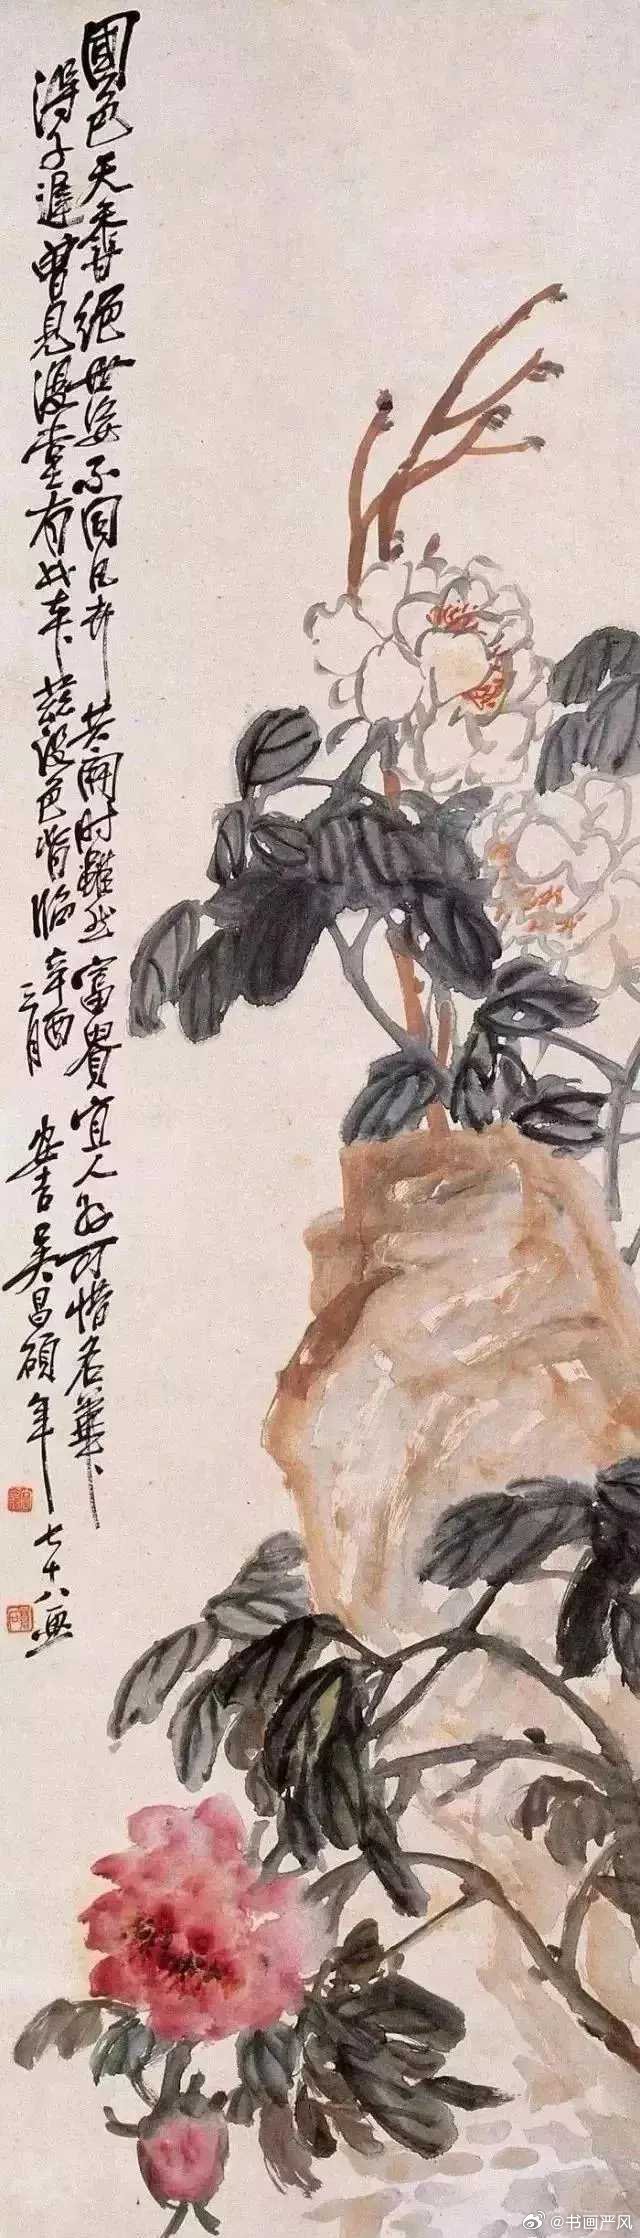 國色天香絕世姿不同凡卉共開時雖然富貴宜人好可惜名華
得子遲曾見漫堂有此本茲設色背臨辛酉
三月
安吉吳昌碩年七十八畫
@书画严风